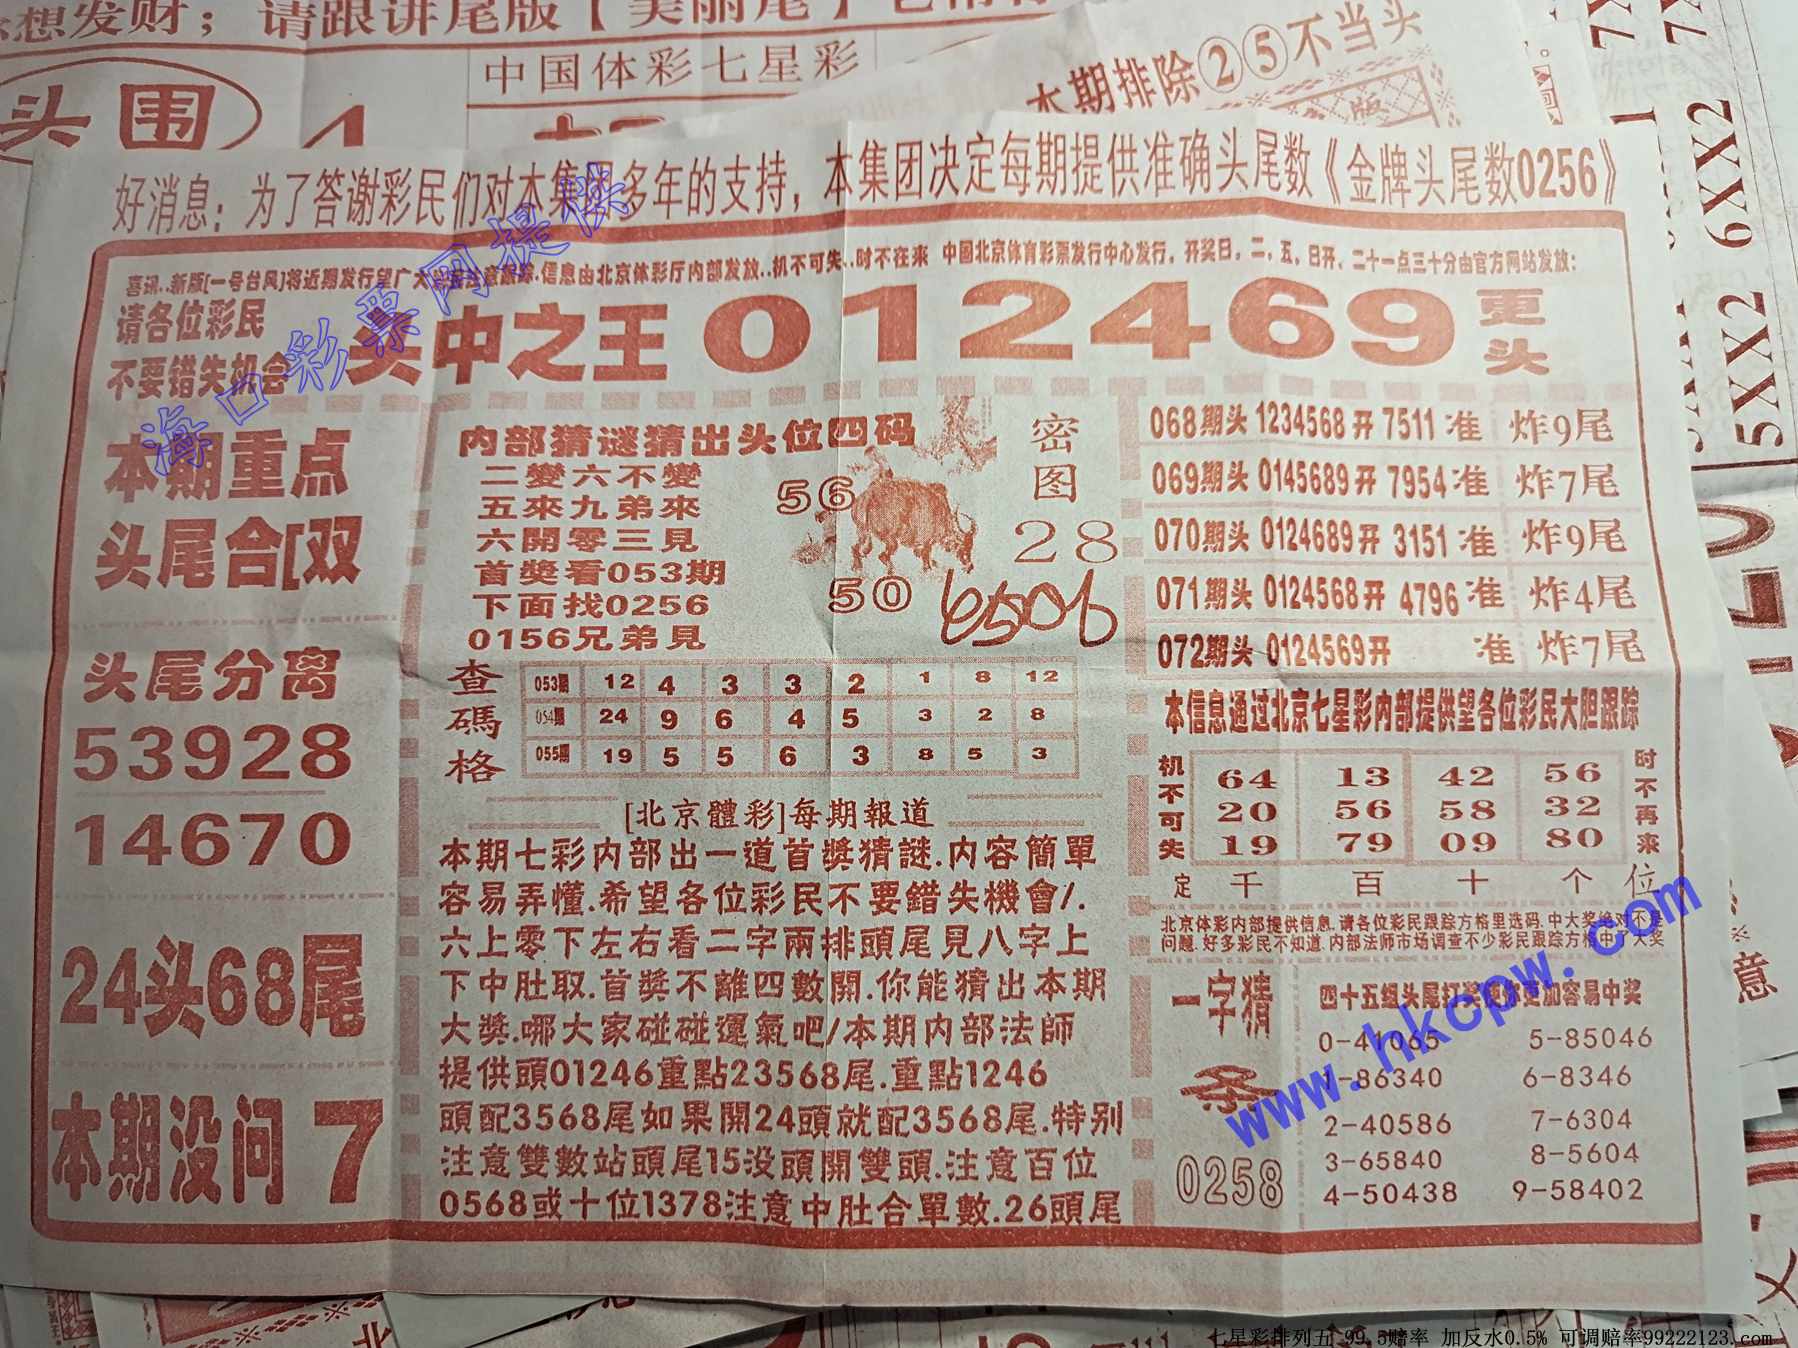 想发财；请跟讲尾版【美丽尾】
中国体彩七星彩
头围
本期排除②⑤不当头
7X
7X
6XX2
5XX2
意
好消息：为了答谢彩民们对本集团多年的支持，本集团决定每期提供准确头尾数《金牌头尾数0256》
喜讯..新版[一号台风]将近期发行望广大彩民注意跟踪.信息由北京体彩厅内部发放..机不可失..时不在来 中国北京体育彩票发行中心发行，开奖日，二，五，日开、二十一点三十分由官方网站发放：
请各位彩民
不要错失机会
头中之王 012469 更头
海口彩票网提供
本期重点
头尾合[双
头尾分离
53928
14670
24头68尾
本期没问 7
内部猜谜猜出头位四码
二變六不變
五來九弟來
六開零三見
首獎看053期
下面找0256
0156兄弟見
56
50
密图
28
6506
查碼格
053期 12 4 3 3 2 1 8 12
054期 24 9 6 4 5 3 2 8
055期 19 5 5 6 3 8 5 3
[北京體彩]每期報道
本期七彩内部出一道首獎猜謎.内容簡單
容易弄懂.希望各位彩民不要錯失機會/.
六上零下左右看二字兩排頭尾見八字上
下中肚取.首獎不離四數開.你能猜出本期
大獎.哪大家碰碰運氣吧/本期内部法師
提供頭01246重點23568尾.重點1246
頭配3568尾如果開24頭就配3568尾.特别
注意雙數站頭尾15没頭開雙頭.注意百位
0568或十位1378注意中肚合單數.26頭尾
068期头 1234568开 7511 准 炸9尾
069期头 0145689开 7954 准 炸7尾
070期头 0124689开 3151 准 炸9尾
071期头 0124568开 4796 准 炸4尾
072期头 0124569开 准 炸7尾
本信息通过北京七星彩内部提供望各位彩民大胆跟踪
机不可失
64 13 42 56
20 56 58 32
19 79 09 80
时不再来
定 千 百 十 个 位
北京体彩内部提供信息.请各位彩民跟踪方格里选码.中大奖绝对不是
问题.好多彩民不知道.内部法师市场调查不少彩民跟踪方格中了大奖
一字猜
条
0258
四十五组头尾打奖使你更加容易中奖
0-41065 5-85046
1-86340 6-8346
2-40586 7-6304
3-65840 8-5604
4-50438 9-58402
www.hkcpw.com
七星彩排列五 99.5赔率 加反水0.5% 可调赔率99222123.com